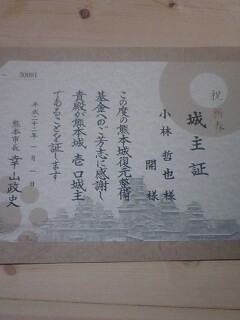 祝 新春
城主証
小林 哲也 様
開 様
この度の熊本城復元整備
基金へのご芳志に感謝し
貴殿が熊本城 壱口城主
であることを証します
平成二十二年 一月 一日
熊本市長 幸山政史
30081